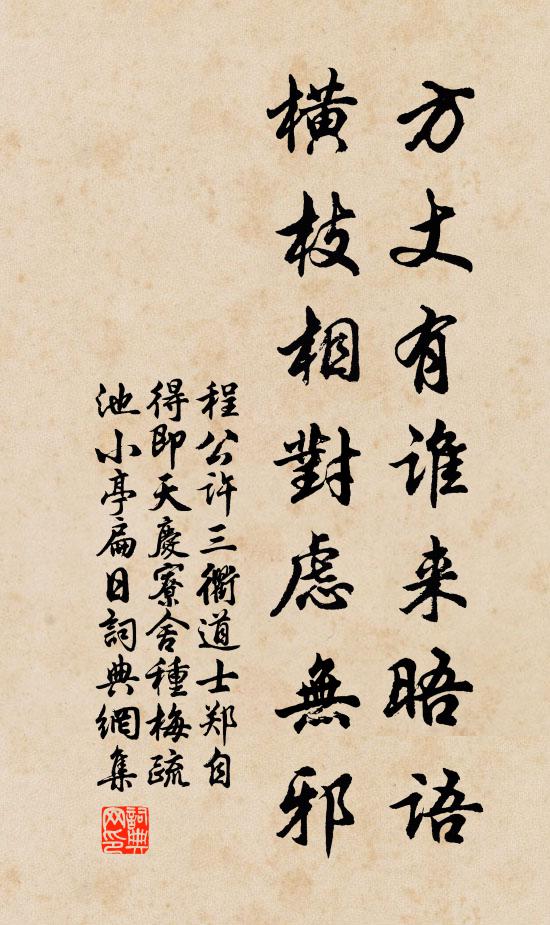 方丈有谁来晤语
橫枝相對慮無邪
程公许三衢道士郑自
得即天慶寮舍種梅疏
池小亭扁日詞典網集
詞典
网印